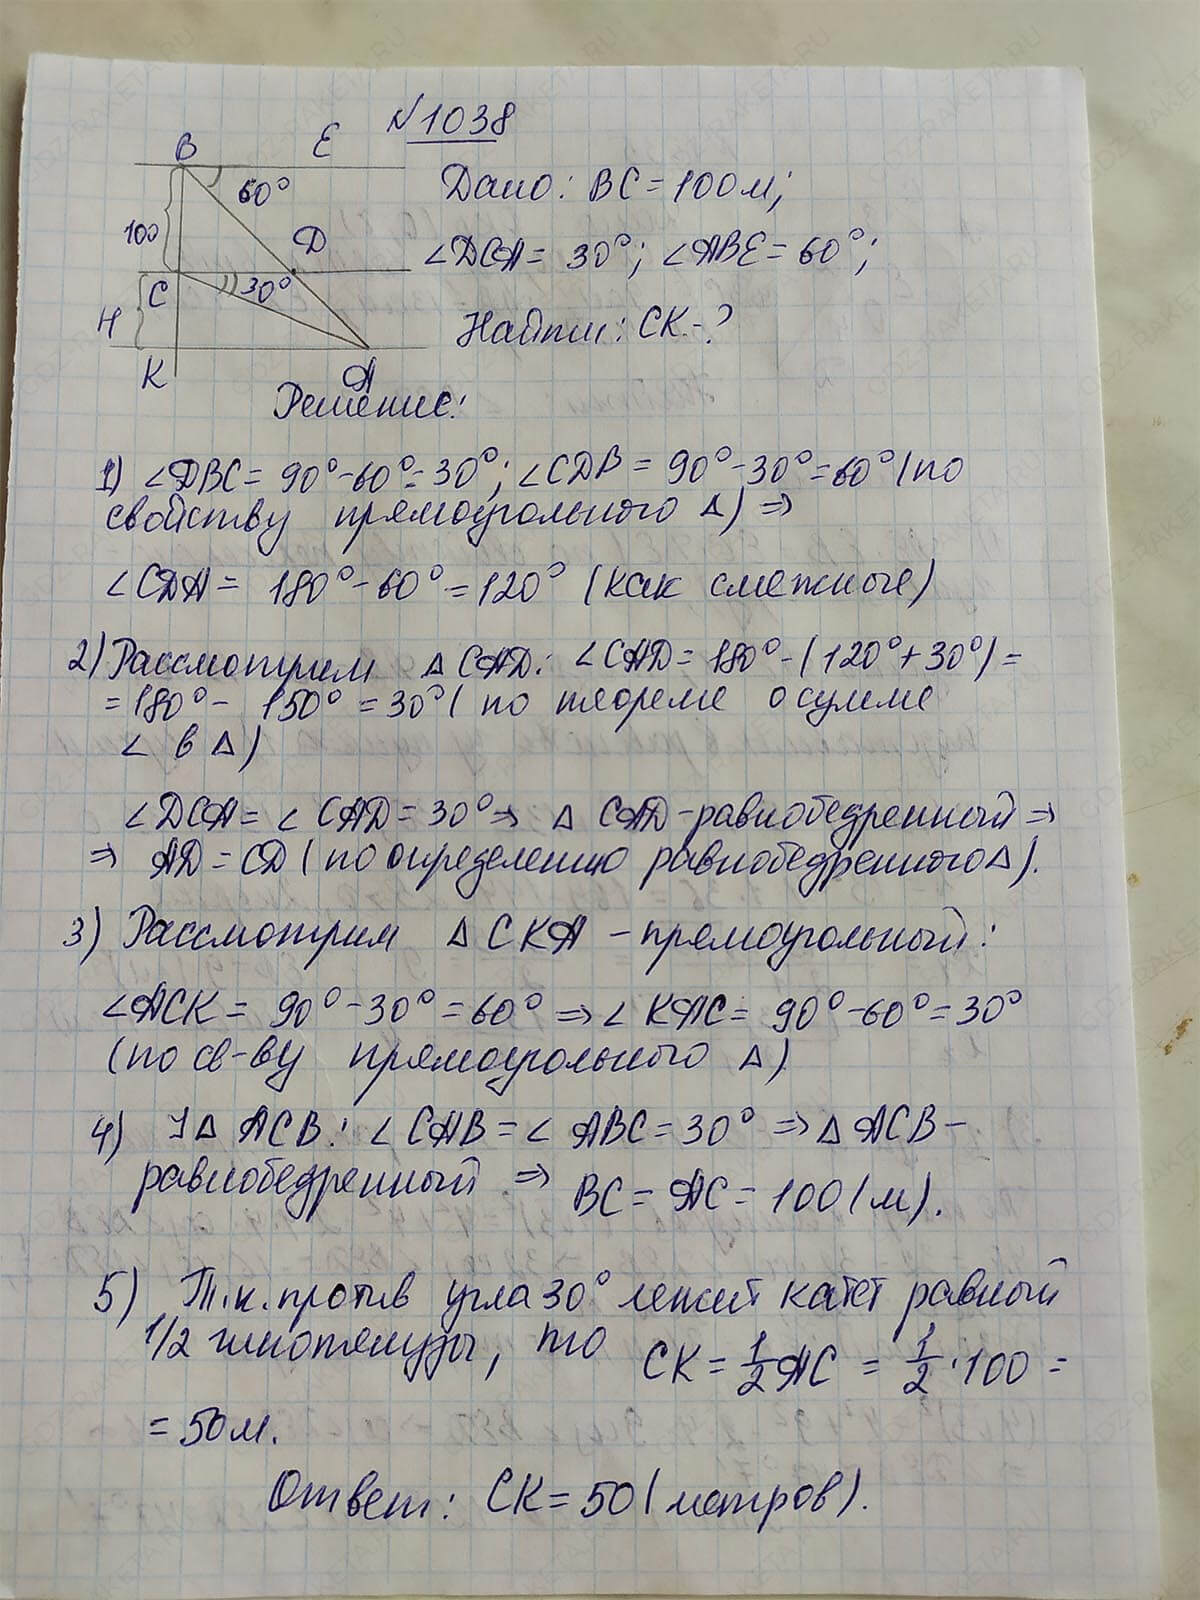 №1038
B E
60°
Дано: BC = 100м;
100
D
∠DCA = 30°; ∠ABE = 60°;
C 30°
H
Найти: CK - ?
K A
Решение:
1) ∠DBC = 90° - 60° = 30°; ∠CDB = 90° - 30° = 60° (по
свойству прямоугольного Δ) ⇒
∠CDA = 180° - 60° = 120° (как смежные)
2) Рассмотрим Δ CAD: ∠CAD = 180° - (120° + 30°) =
= 180° - 150° = 30° (по теореме о сумме
∠ в Δ)
∠DCA = ∠CAD = 30° ⇒ Δ CAD - равнобедренный ⇒
⇒ AD = CD (по определению равнобедренного Δ).
3) Рассмотрим Δ CKA - прямоугольный:
∠ACK = 90° - 30° = 60° ⇒ ∠KAC = 90° - 60° = 30°
(по св-ву прямоугольного Δ)
4) Δ ACB: ∠CAB = ∠ABC = 30° ⇒ Δ ACB -
равнобедренный ⇒ BC = AC = 100 (м).
5) Т.к. против угла 30° лежит катет равный
1/2 гипотенузы, то CK = 1/2 AC = 1/2 · 100 =
= 50м.
Ответ: CK = 50 (метров).